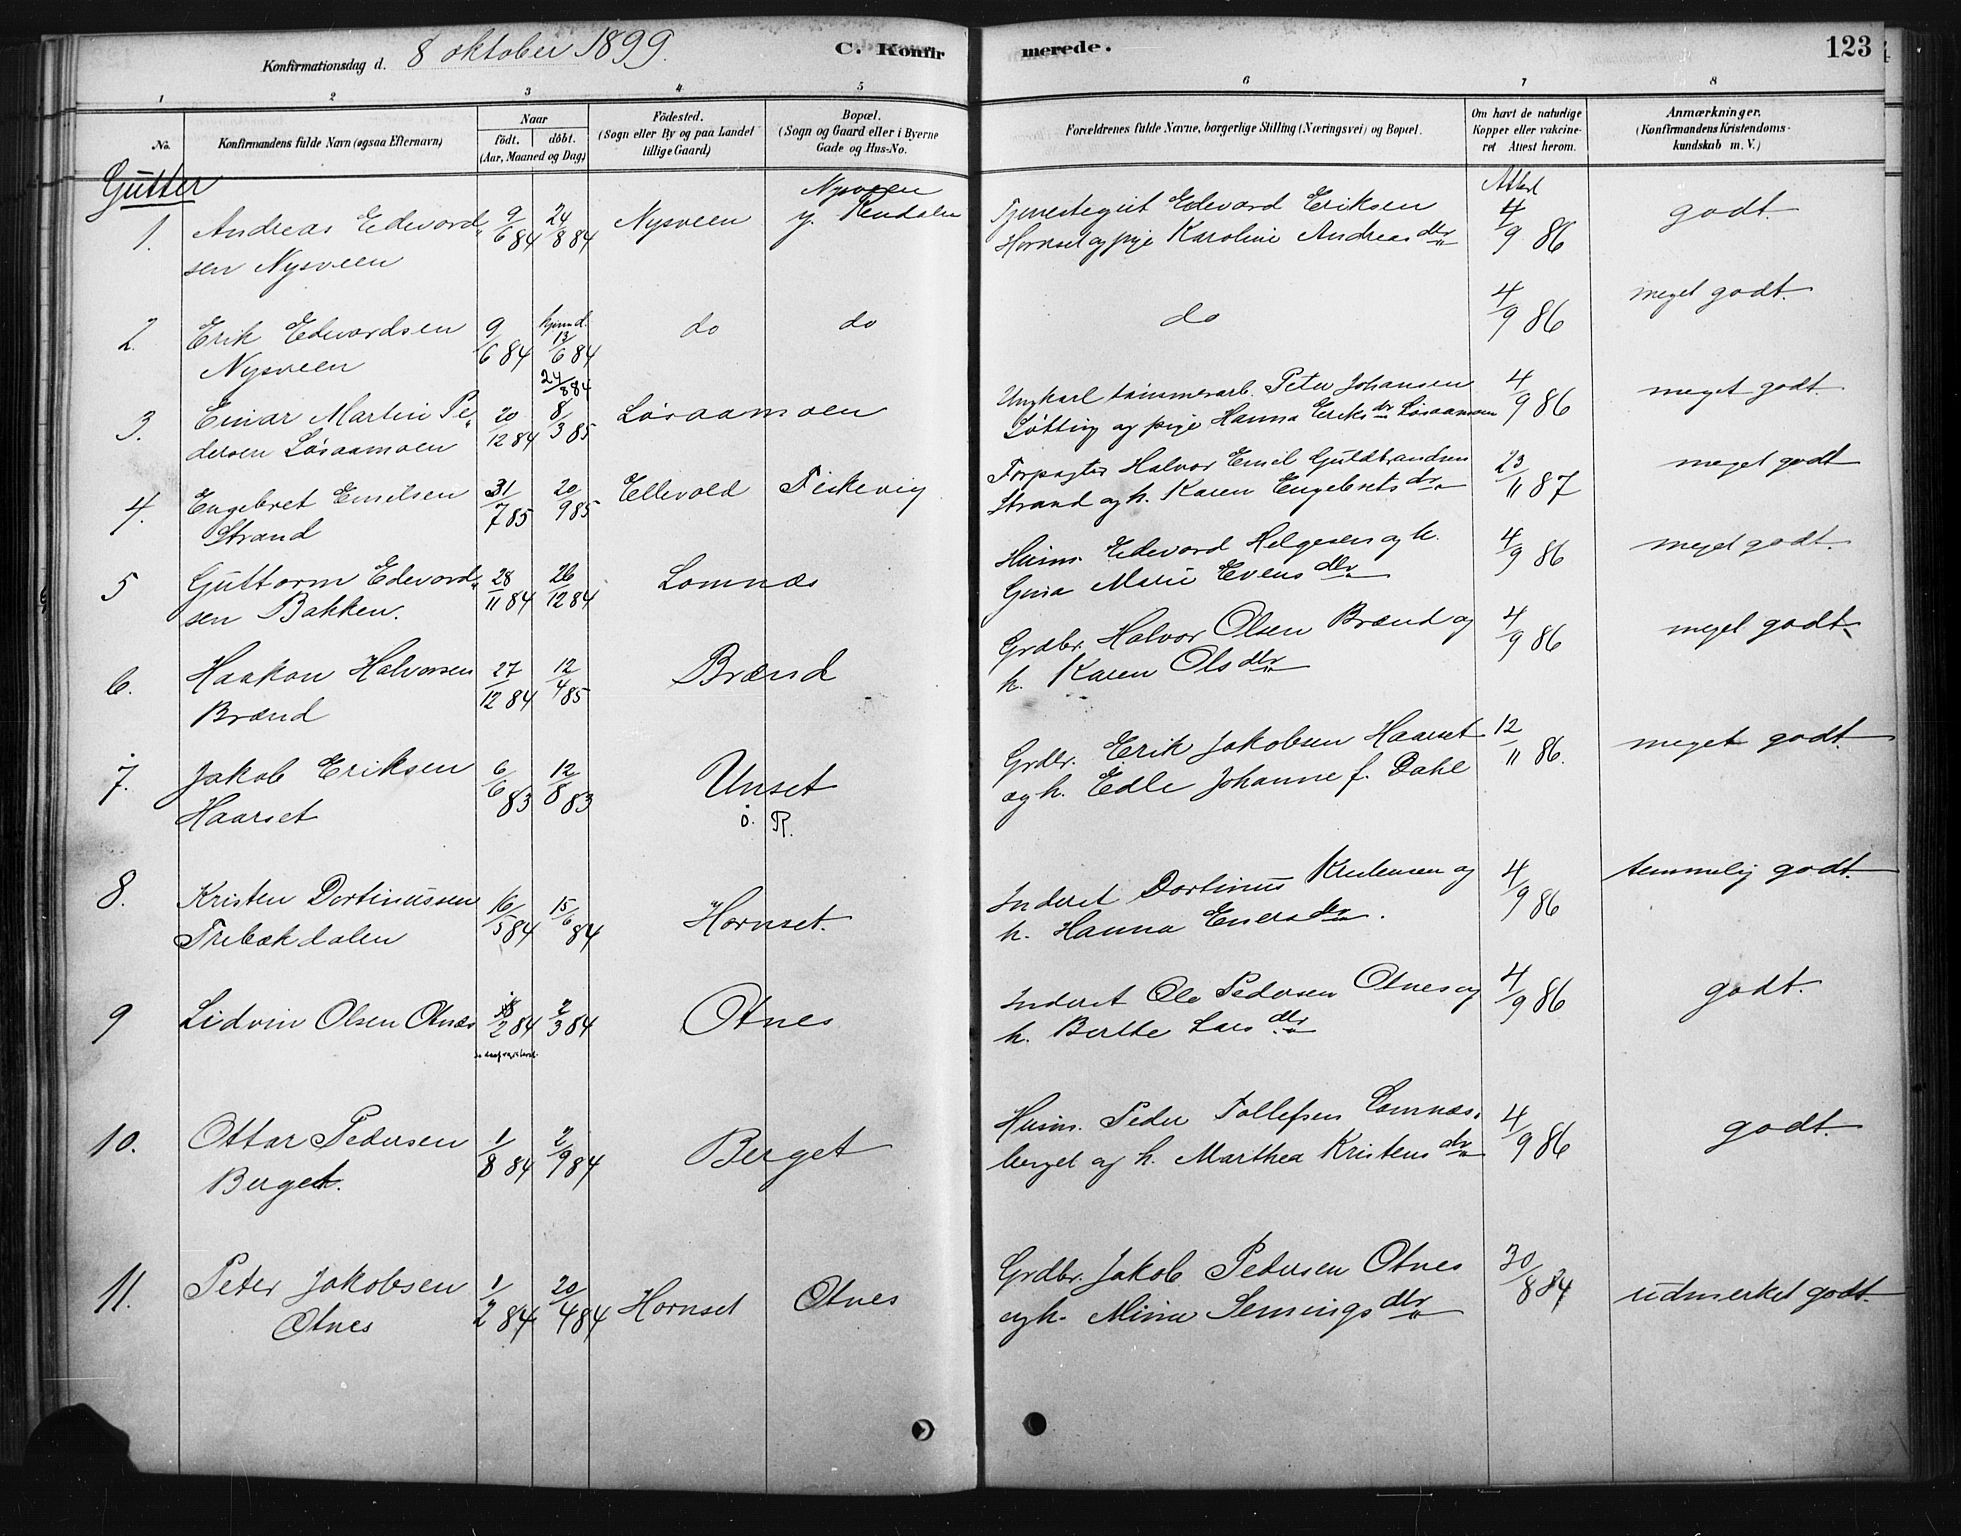 Konfirmationsdag d. 8 oktober 1899.
C. Konfirmerede.
123
1 2 3 4 5 6 7 8
No.
Konfirmandens fulde Navn (ogsaa Efternavn)
Naar
födt. döbt.
(Aar, Maaned og Dag)
Födested.
(Sogn eller By og paa Landet
lillige Gaard)
Bopæl.
(Sogn og Gaard eller i Byerne
Gade og Hus-No.
Forældrenes fulde Navne, borgerlige Stilling (Næringsvei) og Bopæl.
Om havt de naturlige
Kopper eller vakcine-
ret Attest herom.
Anmærkninger.
(Konfirmandens Kristendoms-
kundskab m. V.)
Gutter
1. Andreas Edvard- 9/6 84 24/8 84 Nysveen Nysveen y. Rendalen Tjenestegut Edvard Eriksen Attest 4/9 86 godt.
sen Nysveen Hornset og pige Karoline Andreasdtr
2. Erik Edvardsen 9/6 84 hjemmd. 13/6 84 do do do 4/9 86 meget godt.
Nysveen 24/8 84
3. Einar Martin Pe- 20/12 84 8/3 85 Løsaamoen Ungkarl tømmerarb. Peter Johansen 4/9 86 meget godt.
dersen Løsaamoen Løtting og pige Hanna Eriksdtr Løsaamoen
4. Engebret Emilsen 31/7 85 20/9 85 Ellevold Fiskevig Forpagter Halvor Emil Guldbrandsen 23/11 87 meget godt
Strand Strand og h. Karen Engebretsdtr
5 Guttorm Edvard- 28/11 84 26/12 84 Lomnæs Husm. Edvard Helgesen og h. 4/9 86 meget godt.
sen Bakken. Gina Marie Evensdtr
6. Haakon Halvorsen 27/12 84 12/4 85 Brænd Grdbr. Halvor Olsen Brænd og 4/9 86 meget godt.
Brænd h. Karen Olsdtr
7. Jakob Eriksen 6/6 83 12/8 83 Unset Grdbr. Erik Jakobsen Haarset 12/11 86. meget godt.
Haarset ö. R. og h. Edle Johanne f. Dahl
8. Kristen Dortinussen 16/5 84 15/6 84 Hornset. Inderst Dortinus Kristensen og 4/9 86 temmelig godt.
Trebækdalen h. Hanna Enersdtr.
9 Lidvin Olsen Otnæs 2 84 2/3 84 Otnes Inderst Ole Pedersen Otnes og 4/9 86 godt.
h. Berthe Larsdtr
10. Ottar Pedersen 1/8 84 2/9 84 Berget Husm. Peder Tollefsen Lomnæs- 4/9 86 godt.
Berget. berget og h. Marthea Kristensdtr
11. Peter Jakobsen 1/2 84 20/4 84 Hornset Otnes Grdbr. Jakob Pedersen Otnes 30/8 84 udmerket godt.
Otnes og h. Mina Semmingsdtr